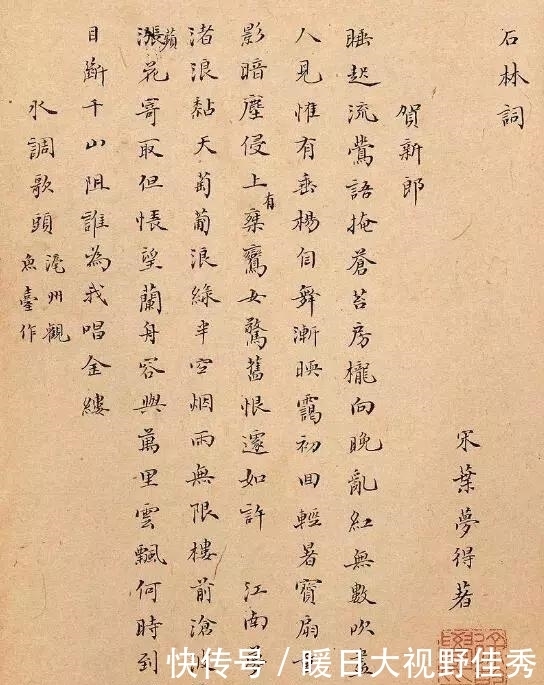 石林詞
宋葉夢得著
賀新郎
睡起流鶯語掩蒼苔房櫳向晚亂紅無數吹盡
人見惟有垂楊自舞漸暎靄初回輕暑寶扇重
影暗塵侵上有乗鸞女驚舊恨遽如許 江南夢
渚浪黏天萄葡浪綠半空烟雨無限樓前滄波
漲蘋花寄取但悵望蘭舟容與萬里雲飄何時到
目斷千山阻誰為我唱金縷
水調歌頭 濠州觀
魚臺作
快传号/暖日大视野佳秀